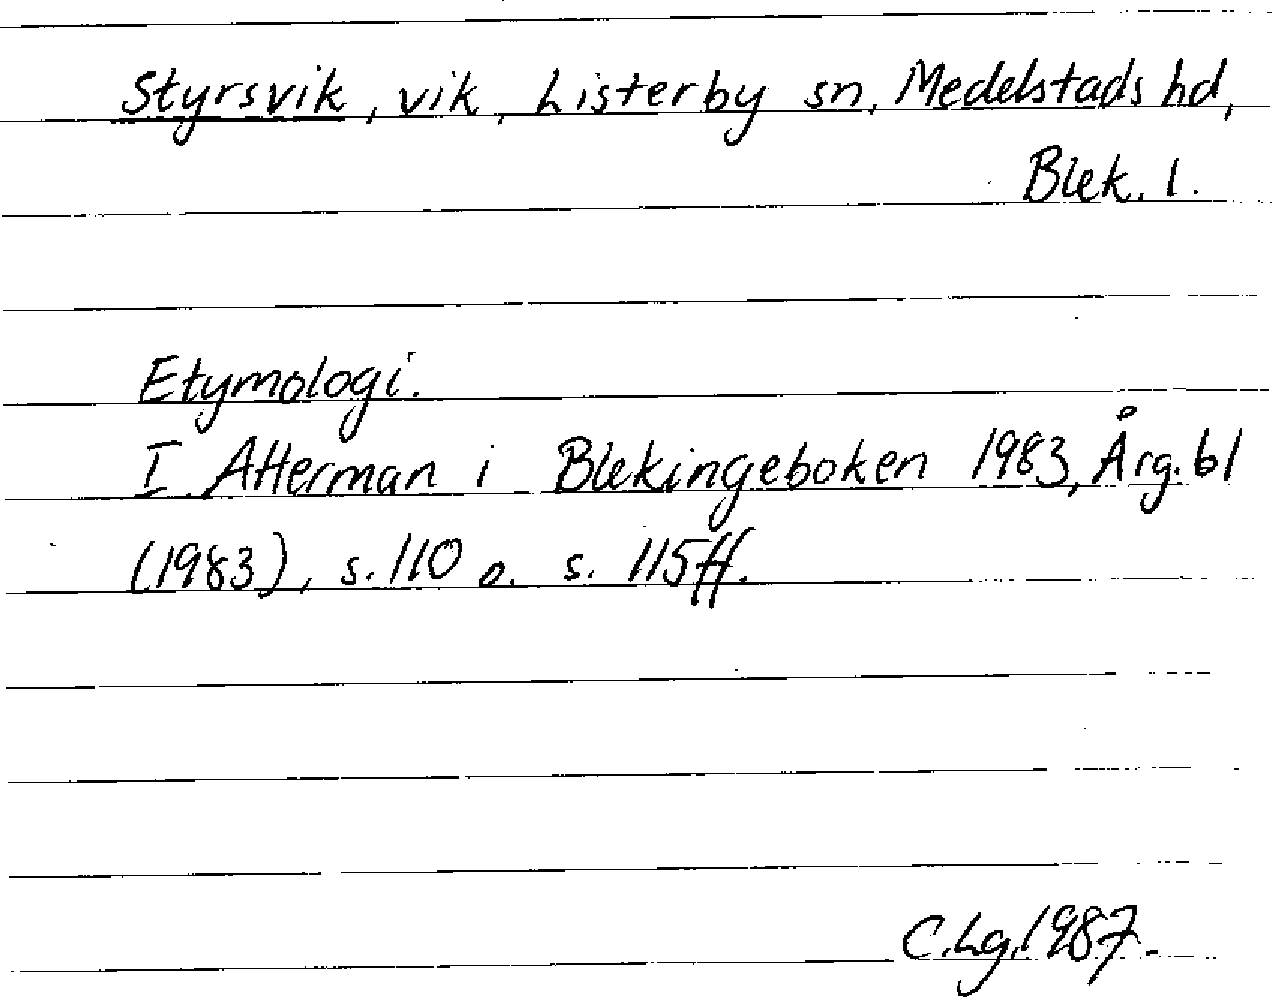 Styrsvik, vik, Listerby sn, Medelstads hd,
Blek. l.
Etymologi.
I. Atterman i Blekingeboken 1983, Årg. 61
(1983), s. 110 o. s. 115 ff.
C. Lg. 1987.